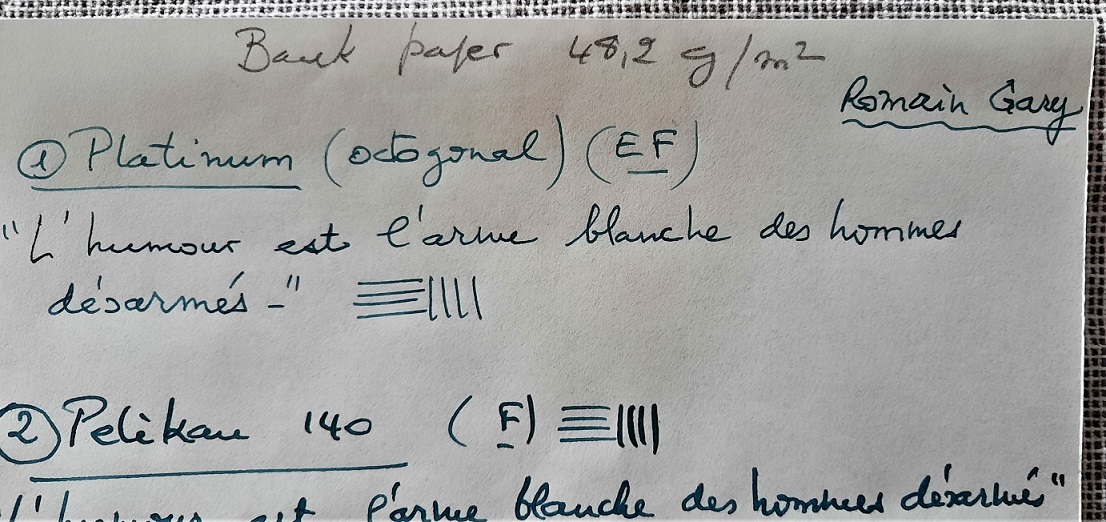 Bank paper 48,2 g/m²
Romain Gary
① Platinum (octogonal) (EF)
"L'humour est l'arme blanche des hommes
désarmés-"
② Pelikan 140 (F)
"L'humour est l'arme blanche des hommes désarmés"